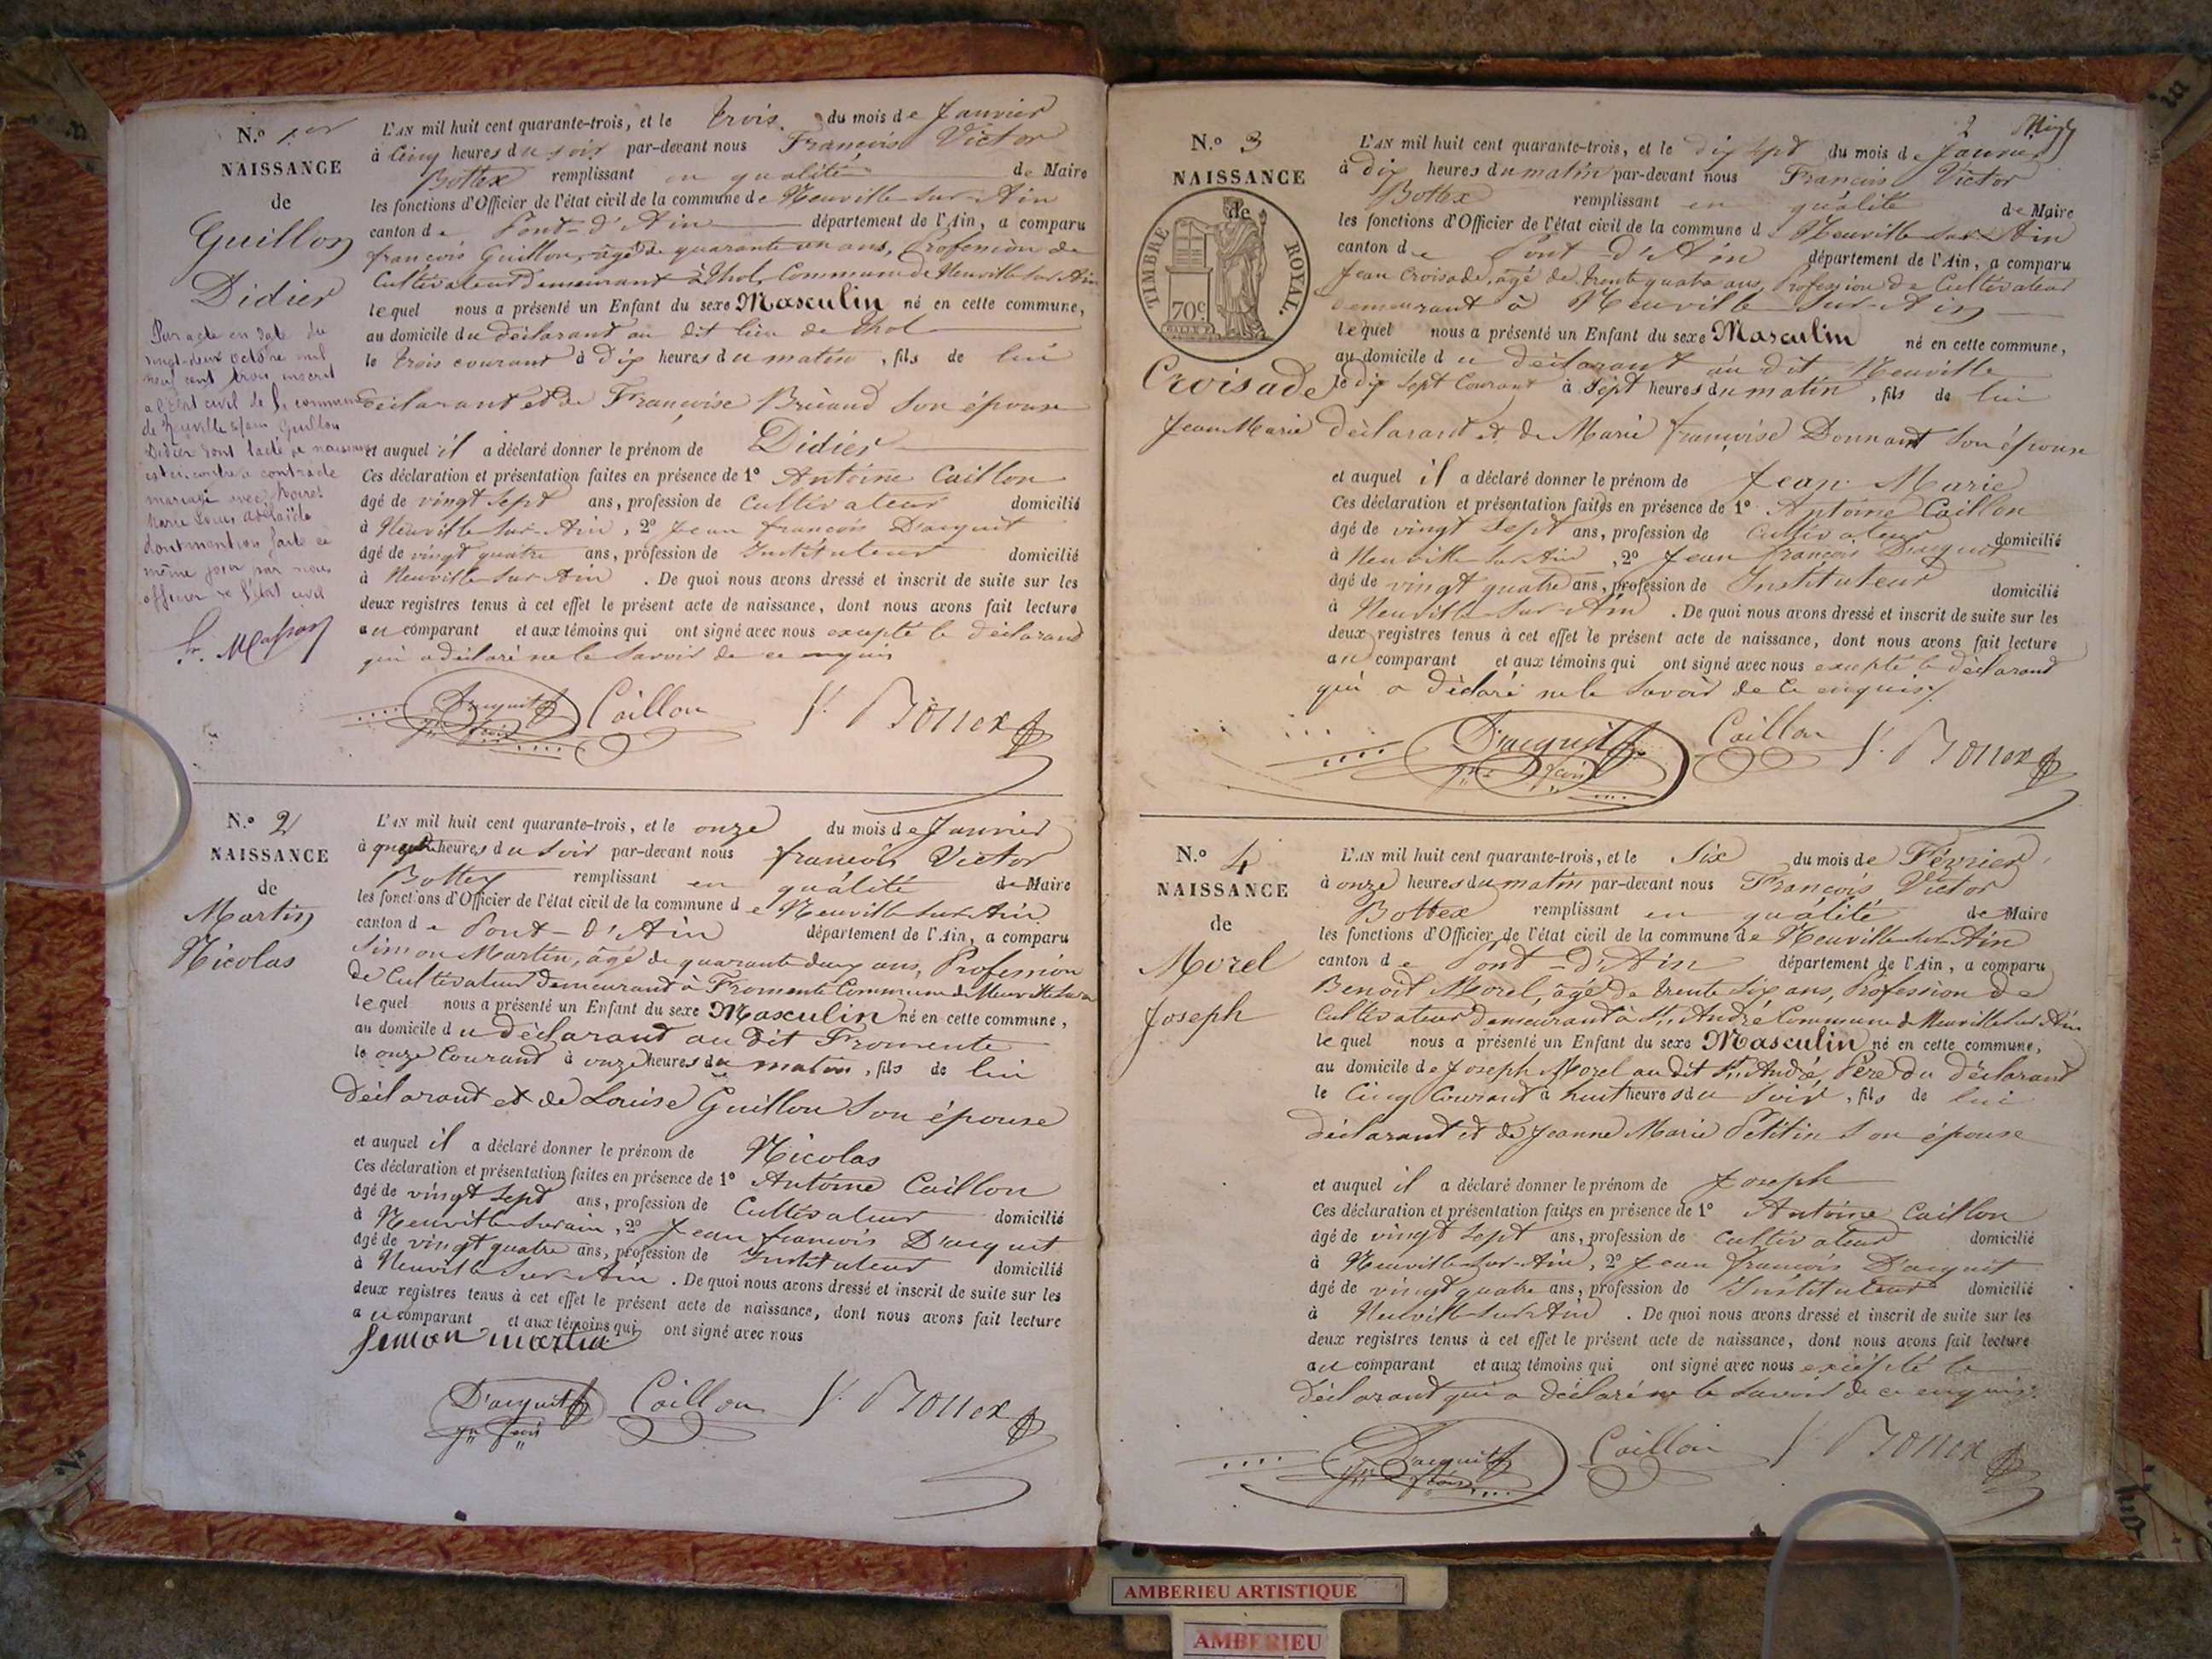 N.º 1er
NAISSANCE
de
Guillon
Didier
Par acte en date du
vingt-deux octobre mil
neuf cent trois inscrit
a l'Etat civil de la commune
de Neuville s/ain Guillon
Didier dont l'acte de naissance
est ci-contre a contracté
mariage avec
Marie Adélaïde
dont mention faite ce
même jour par nous
officier de l'état civil
L'AN mil huit cent quarante-trois, et le trois du mois de Janvier
à Cinq heures du soir par-devant nous François Victor
Bottex remplissant en qualité de Maire
les fonctions d'Officier de l'état civil de la commune de Neuville sur Ain
canton de Pont-d'Ain département de l'Ain, a comparu
françois Guillon, âgé de quarante un ans, Profession de
Cultivateur demeurant à Thol, Commune de Neuville sur Ain
lequel nous a présenté un Enfant du sexe Masculin né en cette commune,
au domicile du déclarant au dit lieu de Thol
le trois courant à dix heures du matin, fils de lui
déclarant et de Françoise Son épouse
et auquel il a déclaré donner le prénom de Didier
Ces déclaration et présentation faites en présence de 1º Antoine Caillon
âgé de vingt Sept ans, profession de Cultivateur domicilié
à Neuville Sur-Ain, 2º Jean françois D'acquit
âgé de vingt quatre ans, profession de Instituteur domicilié
à Neuville Sur Ain. De quoi nous avons dressé et inscrit de suite sur les
deux registres tenus à cet effet le présent acte de naissance, dont nous avons fait lecture
au comparant et aux témoins qui ont signé avec nous excepté le déclarant
qui a déclaré ne le Savoir de ce enquis
D'acquit Caillon V. Bottex
N.º 2
NAISSANCE
de
Martin
Nicolas
L'AN mil huit cent quarante-trois, et le onze du mois de Janvier
à quatre heures du Soir par-devant nous françois Victor
Bottex remplissant en qualité de Maire
les fonctions d'Officier de l'état civil de la commune de Neuville sur Ain
canton de Pont-d'Ain département de l'Ain, a comparu
Simon Martin, âgé de quarante deux ans, Profession
de Cultivateur demeurant à Fromente Commune de Neuville Sur
lequel nous a présenté un Enfant du sexe Masculin né en cette commune,
au domicile du déclarant au dit Fromente
le onze Courant à onze heures du matin, fils de lui
déclarant et de Louise Guillon Son épouse
et auquel il a déclaré donner le prénom de Nicolas
Ces déclaration et présentation faites en présence de 1º Antoine Caillon
âgé de vingt Sept ans, profession de Cultivateur domicilié
à Neuville Sur ain, 2º Jean françois D'acquit
âgé de vingt quatre ans, profession de Instituteur domicilié
à Neuville Sur-Ain. De quoi nous avons dressé et inscrit de suite sur les
deux registres tenus à cet effet le présent acte de naissance, dont nous avons fait lecture
au comparant et aux témoins qui ont signé avec nous
Simon martin
D'acquit Caillon V. Bottex
2
N.º 3
NAISSANCE
de
TIMBRE ROYAL.
70c
Croisade
Jean Marie
L'AN mil huit cent quarante-trois, et le dix sept du mois de Janvier
à dix heures du matin par-devant nous François Victor
Bottex remplissant en qualité de Maire
les fonctions d'Officier de l'état civil de la commune de Neuville sur Ain
canton de Pont-d'Ain département de l'Ain, a comparu
Jean Croisade, âgé de trente quatre ans, Profession de Cultivateur
demeurant à Neuville Sur-Ain
lequel nous a présenté un Enfant du sexe Masculin né en cette commune,
au domicile du déclarant au dit Neuville
le dix Sept Courant à Sept heures du matin, fils de lui
déclarant et de Marie françoise Donnant Son épouse
et auquel il a déclaré donner le prénom de Jean Marie
Ces déclaration et présentation faites en présence de 1º Antoine Caillon
âgé de vingt Sept ans, profession de Cultivateur domicilié
à Neuville Sur Ain, 2º Jean françois D'acquit
âgé de vingt quatre ans, profession de Instituteur domicilié
à Neuville Sur-Ain. De quoi nous avons dressé et inscrit de suite sur les
deux registres tenus à cet effet le présent acte de naissance, dont nous avons fait lecture
au comparant et aux témoins qui ont signé avec nous excepté le déclarant
qui a déclaré ne le Savoir de Ce enquis
D'acquit Caillon V. Bottex
N.º 4
NAISSANCE
de
Morel
Joseph
L'AN mil huit cent quarante-trois, et le Six du mois de Février
à onze heures du matin par-devant nous François Victor
Bottex remplissant en qualité de Maire
les fonctions d'Officier de l'état civil de la commune de Neuville sur Ain
canton de Pont-d'Ain département de l'Ain, a comparu
Benoit Morel, âgé de trente Six ans, Profession de
Cultivateur demeurant à St. André Commune de Neuville Sur Ain
lequel nous a présenté un Enfant du sexe Masculin né en cette commune,
au domicile de Joseph Morel au dit St. André, Père du déclarant
le Cinq Courant à huit heures du Soir, fils de lui
déclarant et de Jeanne Marie Petitin Son épouse
et auquel il a déclaré donner le prénom de Joseph
Ces déclaration et présentation faites en présence de 1º Antoine Caillon
âgé de vingt Sept ans, profession de cultivateur domicilié
à Neuville Sur-Ain, 2º Jean françois D'acquit
âgé de vingt quatre ans, profession de Instituteur domicilié
à Neuville Sur Ain. De quoi nous avons dressé et inscrit de suite sur les
deux registres tenus à cet effet le présent acte de naissance, dont nous avons fait lecture
au comparant et aux témoins qui ont signé avec nous excepté le
déclarant qui a déclaré ne le Savoir de ce enquis.
D'acquit Caillon V. Bottex
AMBERIEU ARTISTIQUE
AMBERIEU